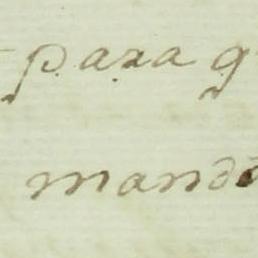 para q
mando